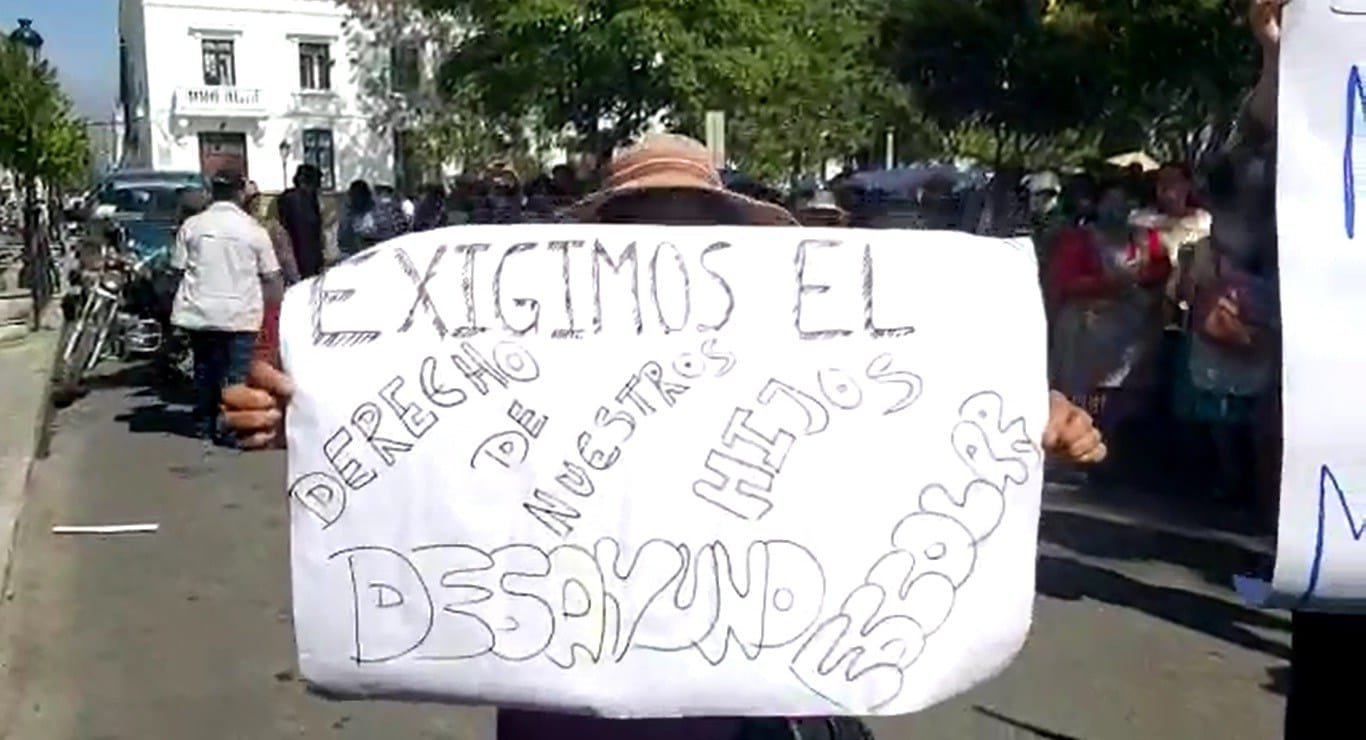 EXIGIMOS EL
DERECHO DE NUESTROS HIJOS
DESAYUNO ESCOLAR